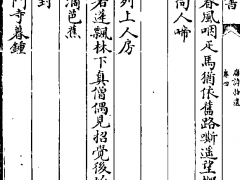 書
春風咽疋馬猶依舊路嘶遥望鄉
向人啼
列上人房
若逢飄林下真僧偶見招覺後
滴芭蕉
封
門寺暮鍾